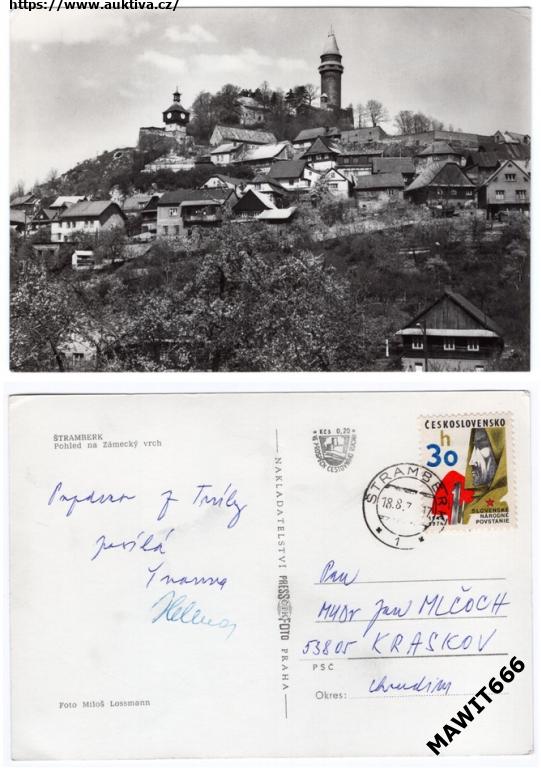 https://www.auktiva.cz/
ŠTRAMBERK
Pohled na Zámecký vrch
Pozdrav z Trúby
posílá
Ivanna
Helena
Foto Miloš Lossmann
NAKLADATELSTVÍ PRESSFOTO PRAHA
Kčs 0,20
VE PROSPĚCH CESTOVNÍHO RUCHU
ČESKOSLOVENSKO
30 h
SLOVENSKÉ
NÁRODNÉ
POVSTANIE
1944
1974
ŠTRAMBERK
18.8.7
1
Pan
MUDr Jan MLČOCH
53805 KRASKOV
PSČ
Okres: Chrudim
MAWIT666